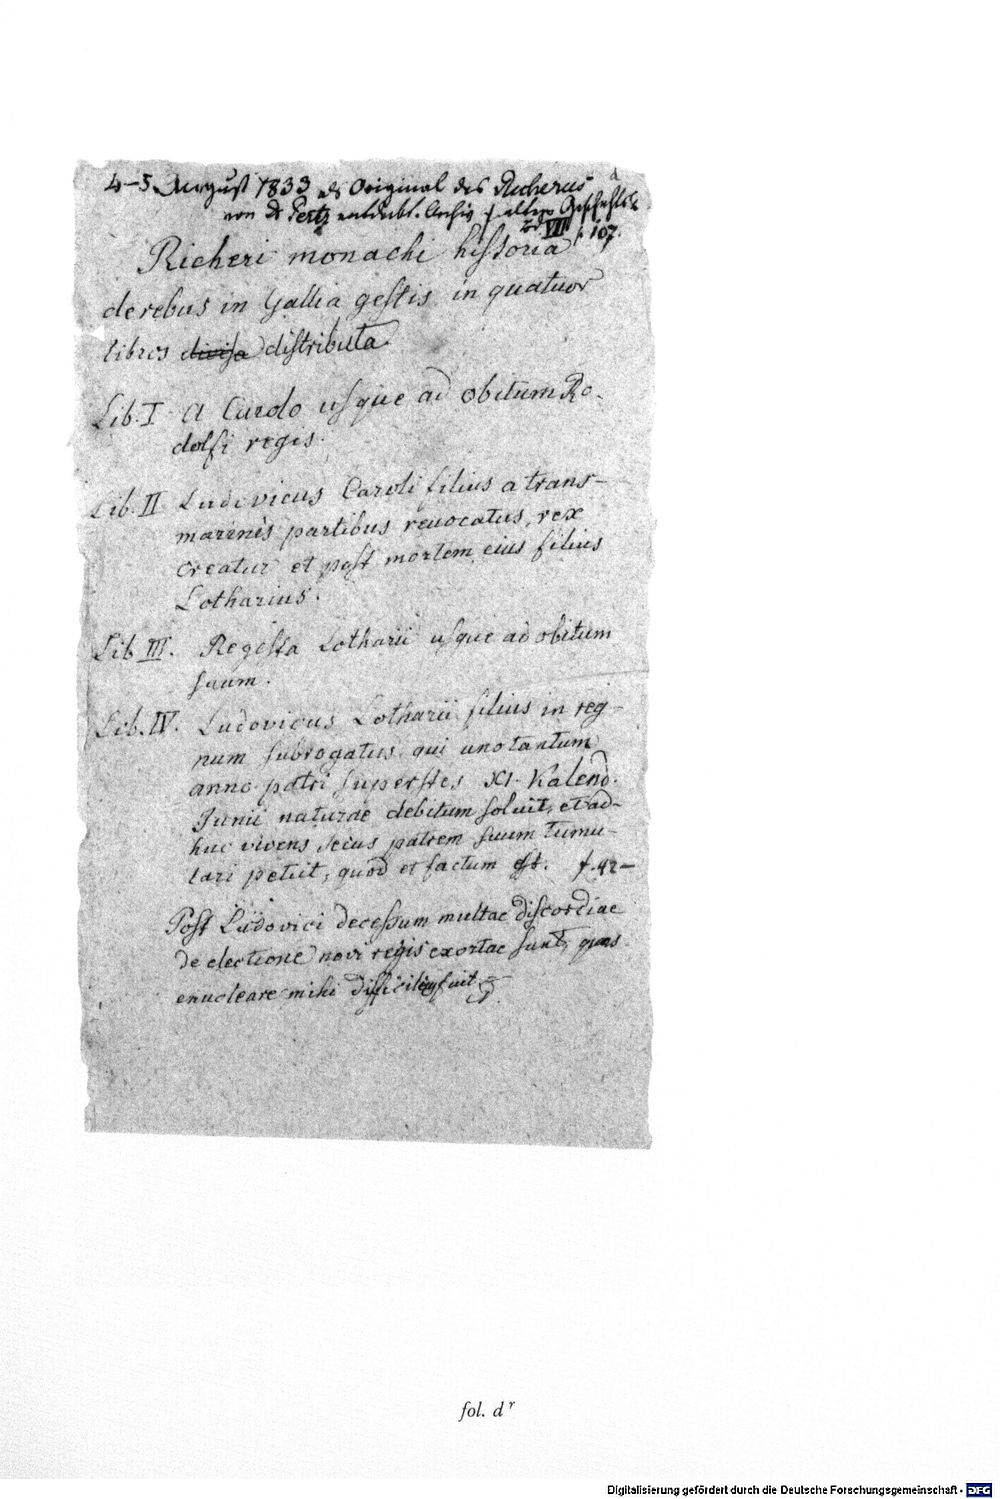 d
4–5. August 1833 als Original des Richerus
von Dr Pertz entdeckt. Archiv f. ältere Geschichtsk.
Bd VII p. 107.
Richeri monachi historia
de rebus in Gallia gestis in quatuor
libros divisa distributa.
Lib. I A Carolo usque ad obitum Ro-
dolfi regis.
Lib. II Ludovicus Caroli filius a trans-
marinis partibus revocatus, rex
creatur et post mortem eius filius
Lotharius.
Lib III. Regesta Lotharii usque ad obitum
suum.
Lib. IV. Ludovicus Lotharii filius in reg-
num subrogatus, qui uno tantum
anno patri superstes XI. Kalend.
Junii naturae debitum soluit, et ad-
huc vivens secus patrem suum tumu-
lari petiit, quod et factum est. f. 42–
Post Ludovici decessum multae discordiae
de electione novi regis exortae sunt, quas
enucleare mihi difficile fuit
fol. d r
Digitalisierung gefördert durch die Deutsche Forschungsgemeinschaft - DFG